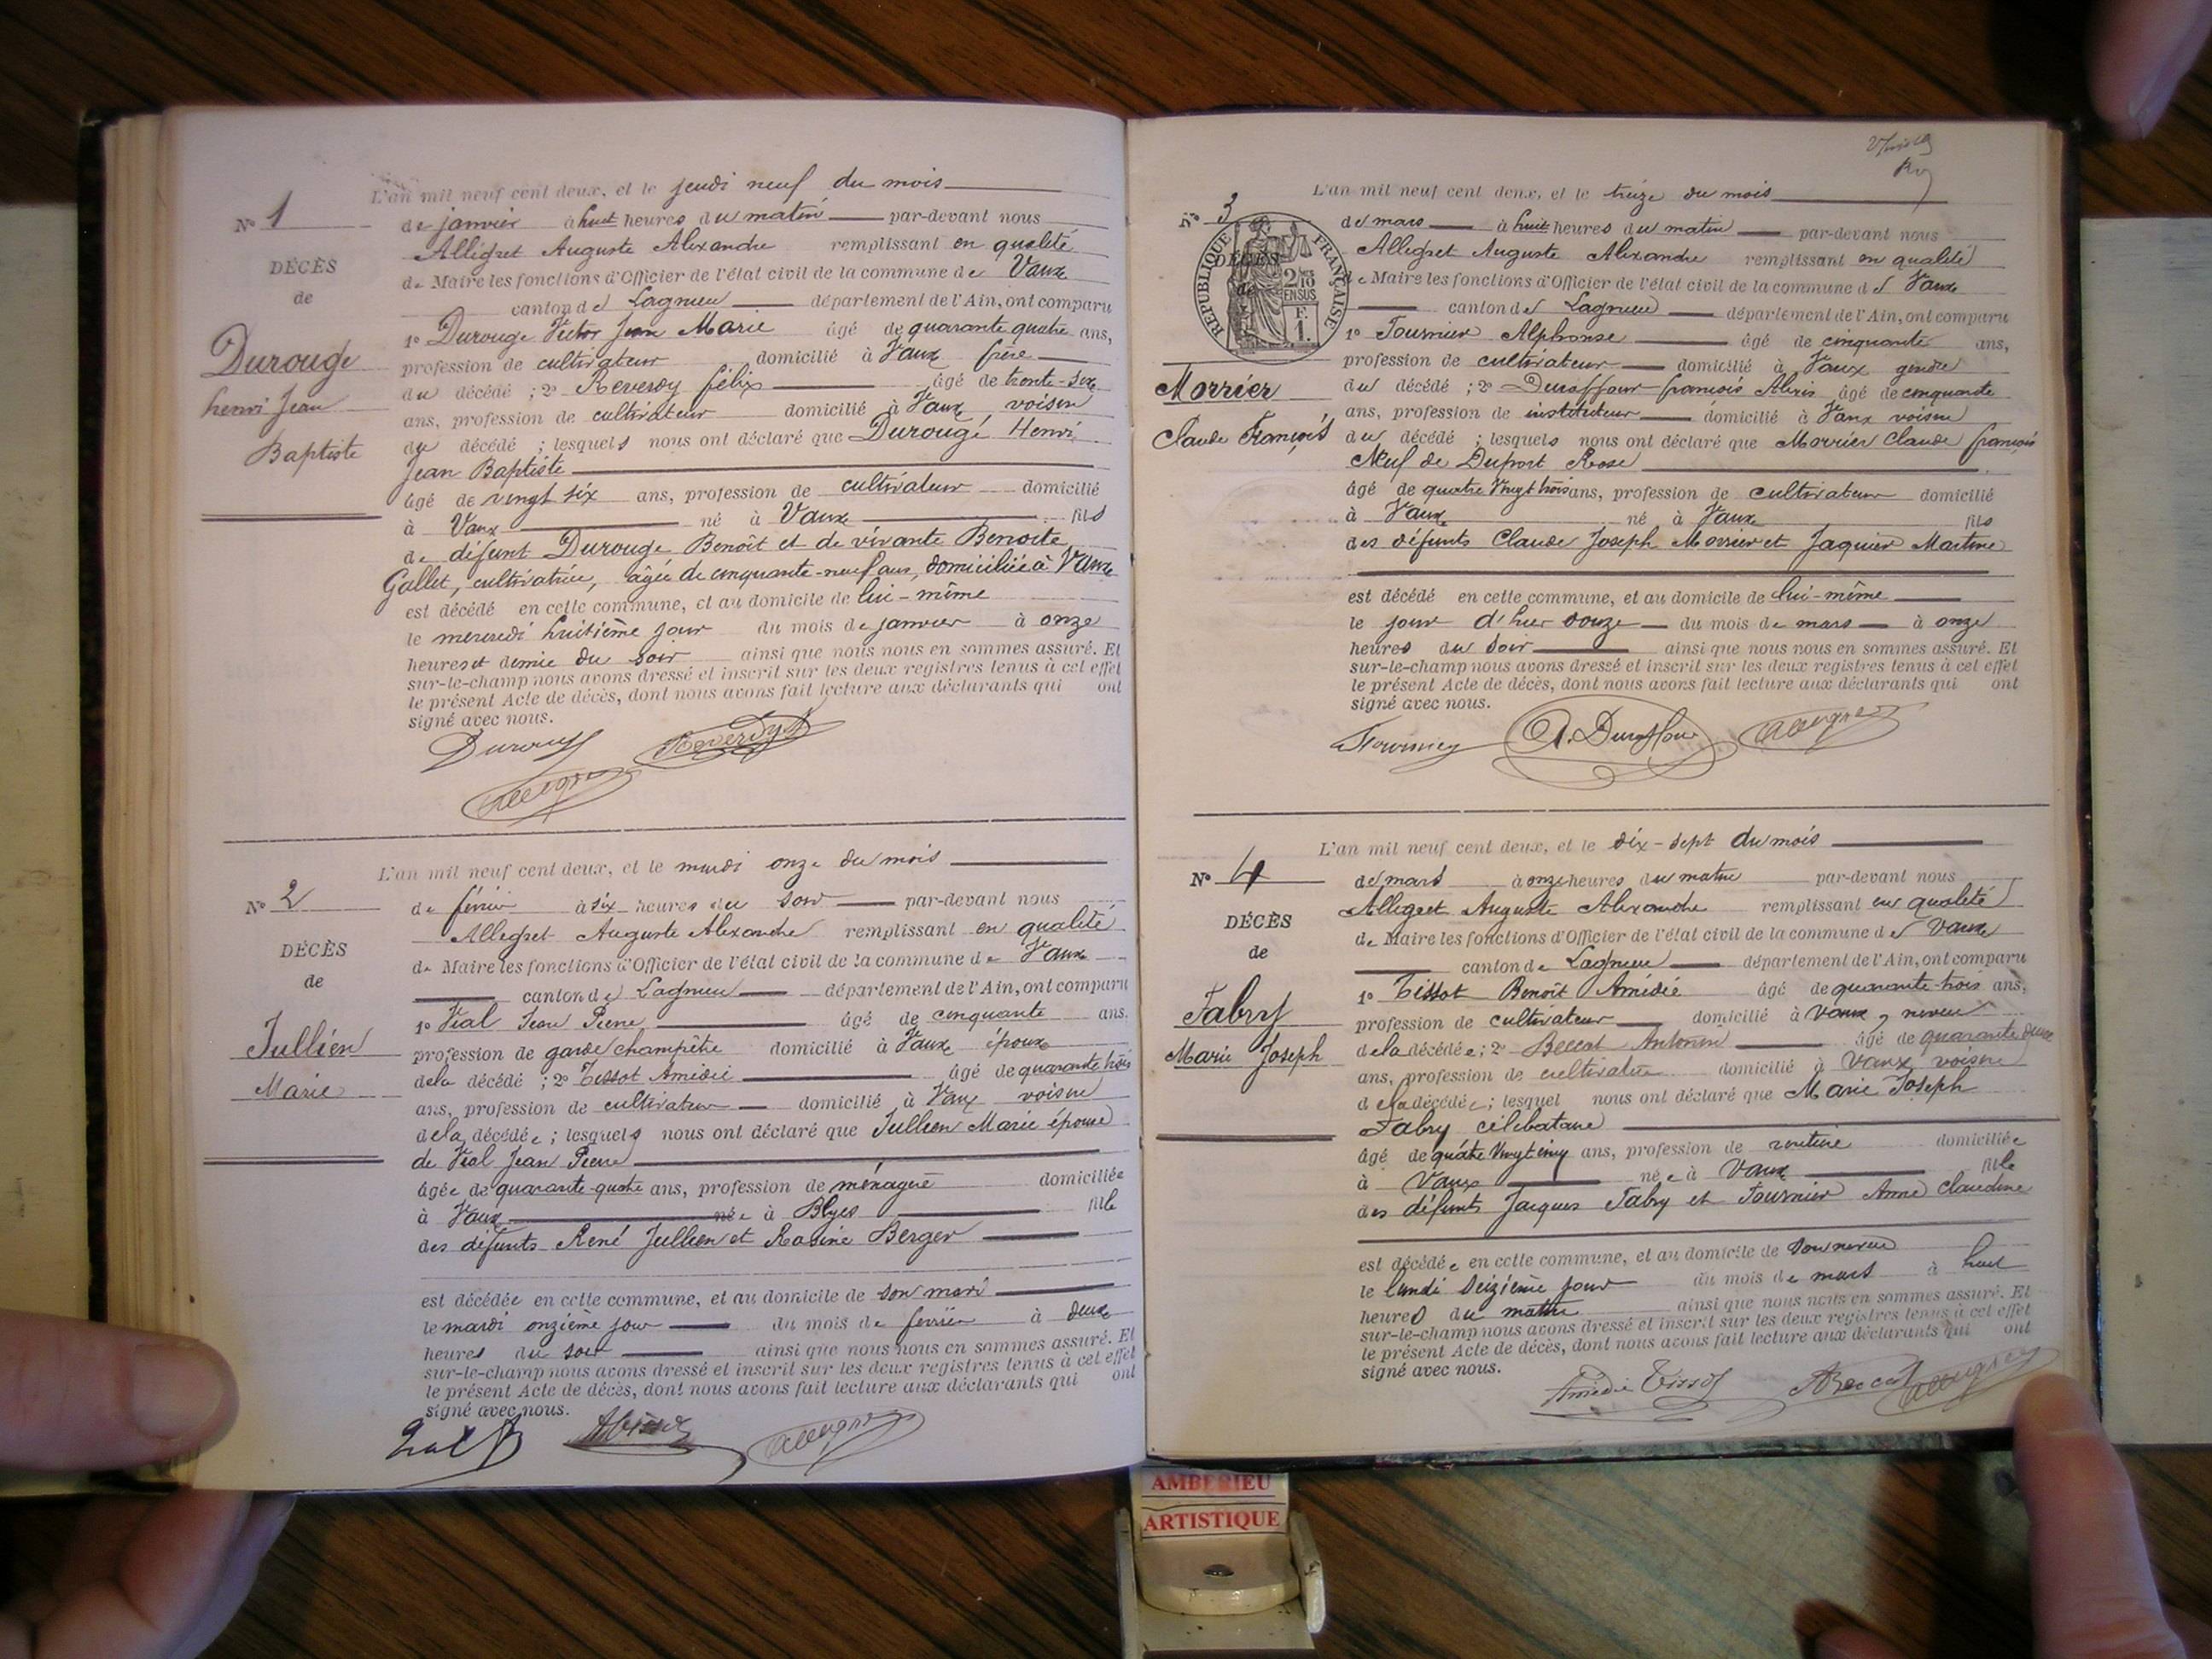 L'an mil neuf cent deux, et le jeudi neuf du mois
N° 1
de janvier à huit heures du matin par-devant nous
Allégret Auguste Alexandre remplissant en qualité
DÉCÈS
de Maire les fonctions d'Officier de l'état civil de la commune de Vaux
de
canton de Lagnieu département de l'Ain, ont comparu
1° Durouge Victor Jean Marie âgé de quarante quatre ans,
Durouge
profession de cultivateur domicilié à Vaux frère
henri Jean
du décédé ; 2° Reverdy félix âgé de trente-six
ans, profession de cultivateur domicilié à Vaux, voisin
Baptiste
du décédé ; lesquels nous ont déclaré que Durougé Henri
Jean Baptiste
âgé de vingt six ans, profession de cultivateur domicilié
à Vaux né à Vaux fils
de défunt Durouge Benoît et de vivante Benoite
Gallet, cultivatrice, âgée de cinquante-neuf ans, domiciliée à Vaux
est décédé en cette commune, et au domicile de lui-même
le mercredi huitième jour du mois de janvier à onze
heures et demie du soir ainsi que nous nous en sommes assuré. Et
sur-le-champ nous avons dressé et inscrit sur les deux registres tenus à cet effet
le présent Acte de décès, dont nous avons fait lecture aux déclarants qui ont
signé avec nous.
Durouge Reverdy
Allegret
L'an mil neuf cent deux, et le mardi onze du mois
N° 2
de février à six heures du soir par-devant nous
Allegret Auguste Alexandre remplissant en qualité
DÉCÈS
de Maire les fonctions d'Officier de l'état civil de la commune de Vaux
de
canton de Lagnieu département de l'Ain, ont comparu
1° Vial Jean Pierre âgé de cinquante ans.
Jullien
profession de garde champêtre domicilié à Vaux époux
Marie
de la décédé ; 2° Tissot Amédée âgé de quarante trois
ans, profession de cultivateur domicilié à Vaux voisin
de la décédée ; lesquels nous ont déclaré que Jullien Marie épouse
de Vial Jean Pierre
âgée de quarante-quatre ans, profession de ménagère domiciliée
à Vaux née à Blyes fille
des défunts René Jullien et Rosine Berger
est décédée en cette commune, et au domicile de son mari
le mardi onzième jour du mois de février à deux
heures du soir ainsi que nous nous en sommes assuré. Et
sur-le-champ nous avons dressé et inscrit sur les deux registres tenus à cet effet
le présent Acte de décès, dont nous avons fait lecture aux déclarants qui ont
signé avec nous.
Allegret
L'an mil neuf cent deux, et le treize du mois
N° 3
de mars à huit heures du matin par-devant nous
Allegret Auguste Alexandre remplissant en qualité
RÉPUBLIQUE FRANÇAISE
DÉCÈS
de
2/10
EN SUS
F.
1.
de Maire les fonctions d'Officier de l'état civil de la commune de Vaux
canton de Lagnieu département de l'Ain, ont comparu
1° Fournier Alphonse âgé de cinquante ans,
profession de cultivateur domicilié à Vaux gendre
Morrier
du décédé ; 2° Duraffour françois Alexis âgé de cinquante
ans, profession de instituteur domicilié à Vaux voisin
Claude François
du décédé ; lesquels nous ont déclaré que Morrier Claude françois
Veuf de Duport Rose
âgé de quatre Vingt trois ans, profession de cultivateur domicilié
à Vaux né à Vaux fils
des défunts Claude Joseph Morrier et Jaquier Martine
est décédé en cette commune, et au domicile de lui-même
le jour d'hier douze du mois de mars à onze
heures du soir ainsi que nous nous en sommes assuré. Et
sur-le-champ nous avons dressé et inscrit sur les deux registres tenus à cet effet
le présent Acte de décès, dont nous avons fait lecture aux déclarants qui ont
signé avec nous.
Fournier A. Duraffour Allegret
L'an mil neuf cent deux, et le dix-sept du mois
N° 4
de mars à onze heures du matin par-devant nous
Allegret Auguste Alexandre remplissant en qualité
DÉCÈS
de Maire les fonctions d'Officier de l'état civil de la commune de Vaux
de
canton de Lagnieu département de l'Ain, ont comparu
1° Tissot Benoît Amédée âgé de quarante-trois ans,
Fabry
profession de cultivateur domicilié à Vaux, neveu
Marie Joseph
de la décédée ; 2° Beccat Antonin âgé de quarante deux
ans, profession de cultivateur domicilié à Vaux voisin
de la décédée ; lesquel nous ont déclaré que Marie Joseph
Fabry célibataire
âgé de quatre Vingt cinq ans, profession de rentière domiciliée
à Vaux née à Vaux fille
des défunts Jacques Fabry et Fournier Anne Claudine
est décédée en cette commune, et au domicile de son neveu
le lundi seizième jour du mois de mars à huit
heures du matin ainsi que nous nous en sommes assuré. Et
sur-le-champ nous avons dressé et inscrit sur les deux registres tenus à cet effet
le présent Acte de décès, dont nous avons fait lecture aux déclarants qui ont
signé avec nous.
Amédée Tissot ABeccat Allegret
AMBERIEU
ARTISTIQUE